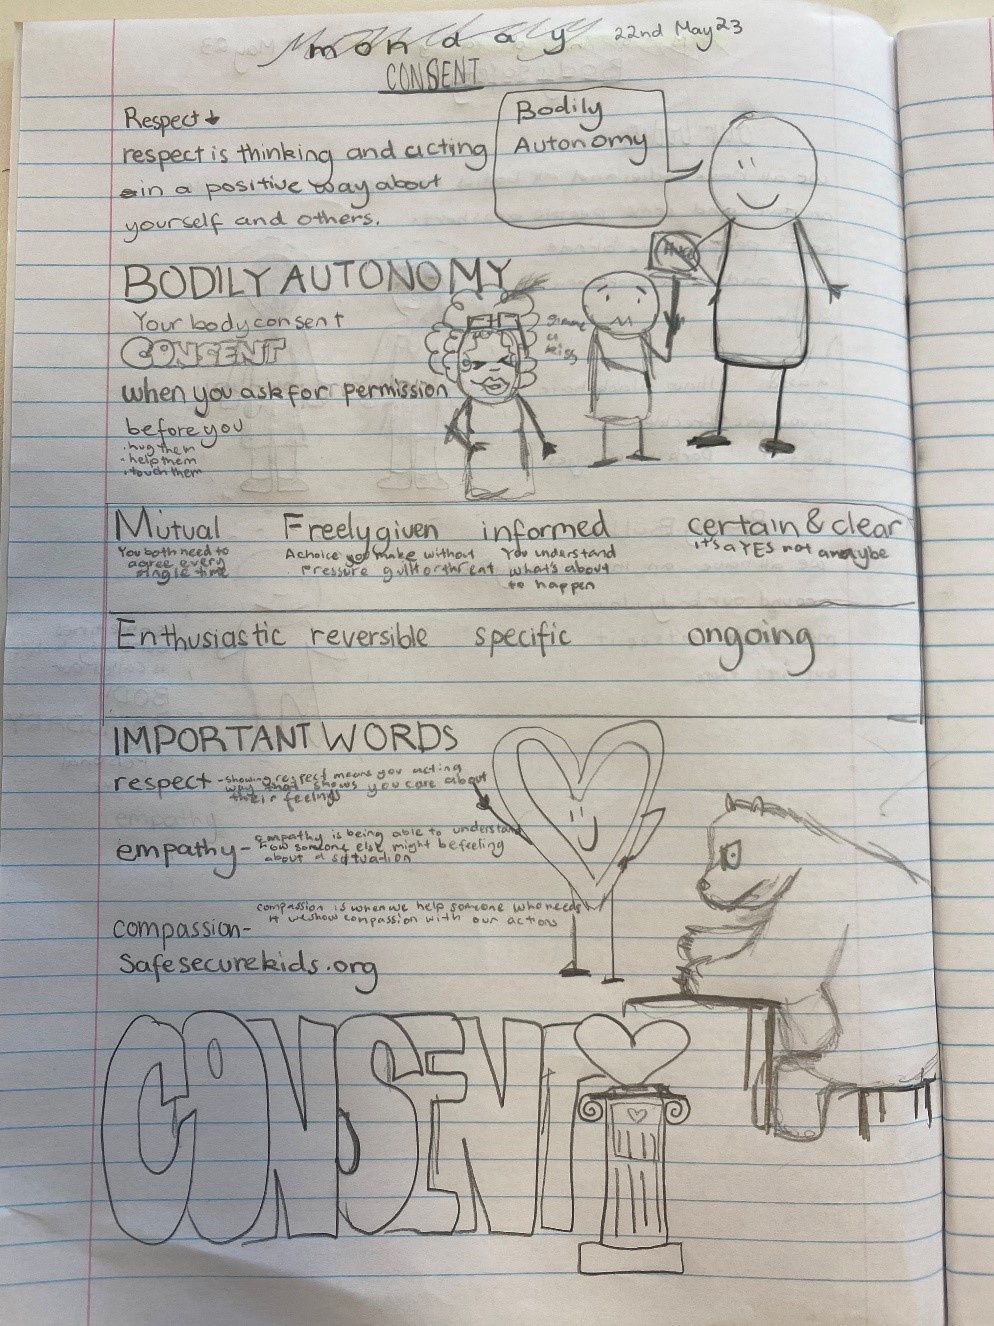 monday 22nd May 23
CONSENT
Respect
respect is thinking and acting
in a positive way about
yourself and others.
Bodily
Autonomy
BODILY AUTONOMY
Your body consent
CONSENT
when you ask for permission
before you
· hug them
· help them
· touch them
gimme
a
kiss
Hugs
Mutual Freely given informed certain & clear
You both need to
agree every
single time
A choice you make without
pressure guilt or threat
You understand
what's about
to happen
it's a YES not a maybe
Enthusiastic reversible specific ongoing
IMPORTANT WORDS
respect - showing respect means you acting
way that shows you care about
their feelings
empathy - empathy is being able to understand
how someone else might be feeling
about a situation
compassion - compassion is when we help someone who needs
it we show compassion with our action
Safesecurekids.org
CONSENT